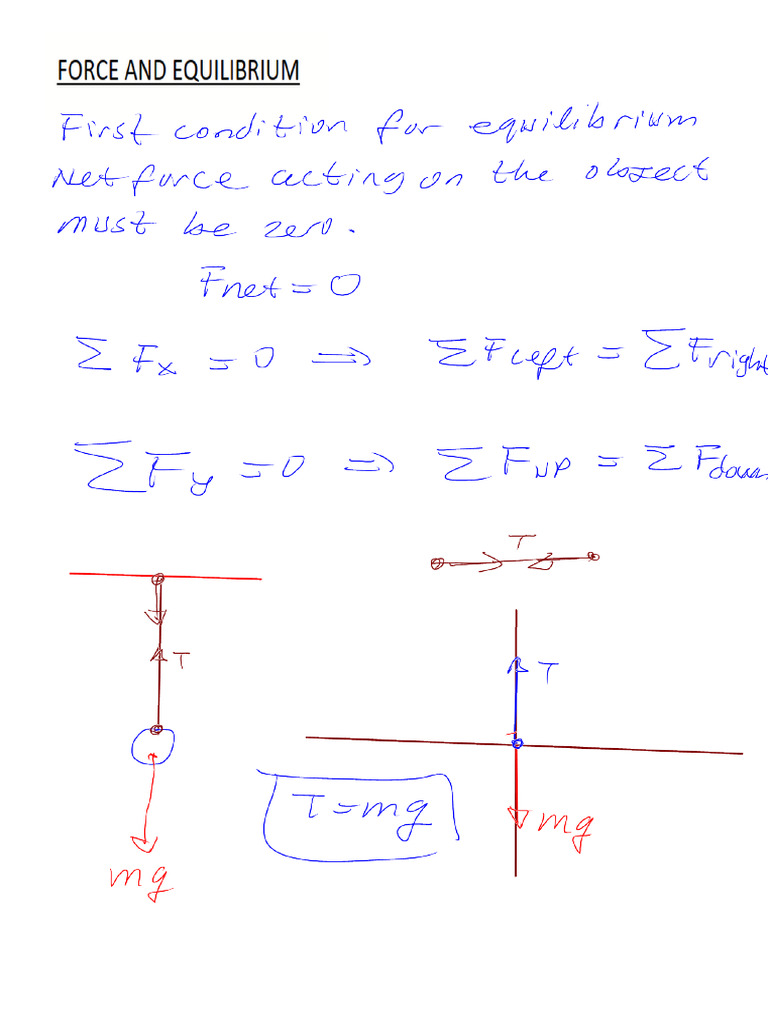 FORCE AND EQUILIBRIUM
First condition for equilibrium
Net force acting on the object
must be zero.
Fnet = 0
Σ Fx = 0 ⇒ Σ Fleft = Σ Fright
Σ Fy = 0 ⇒ Σ Fup = Σ Fdown
T
T
T
T = mg
mg
mg